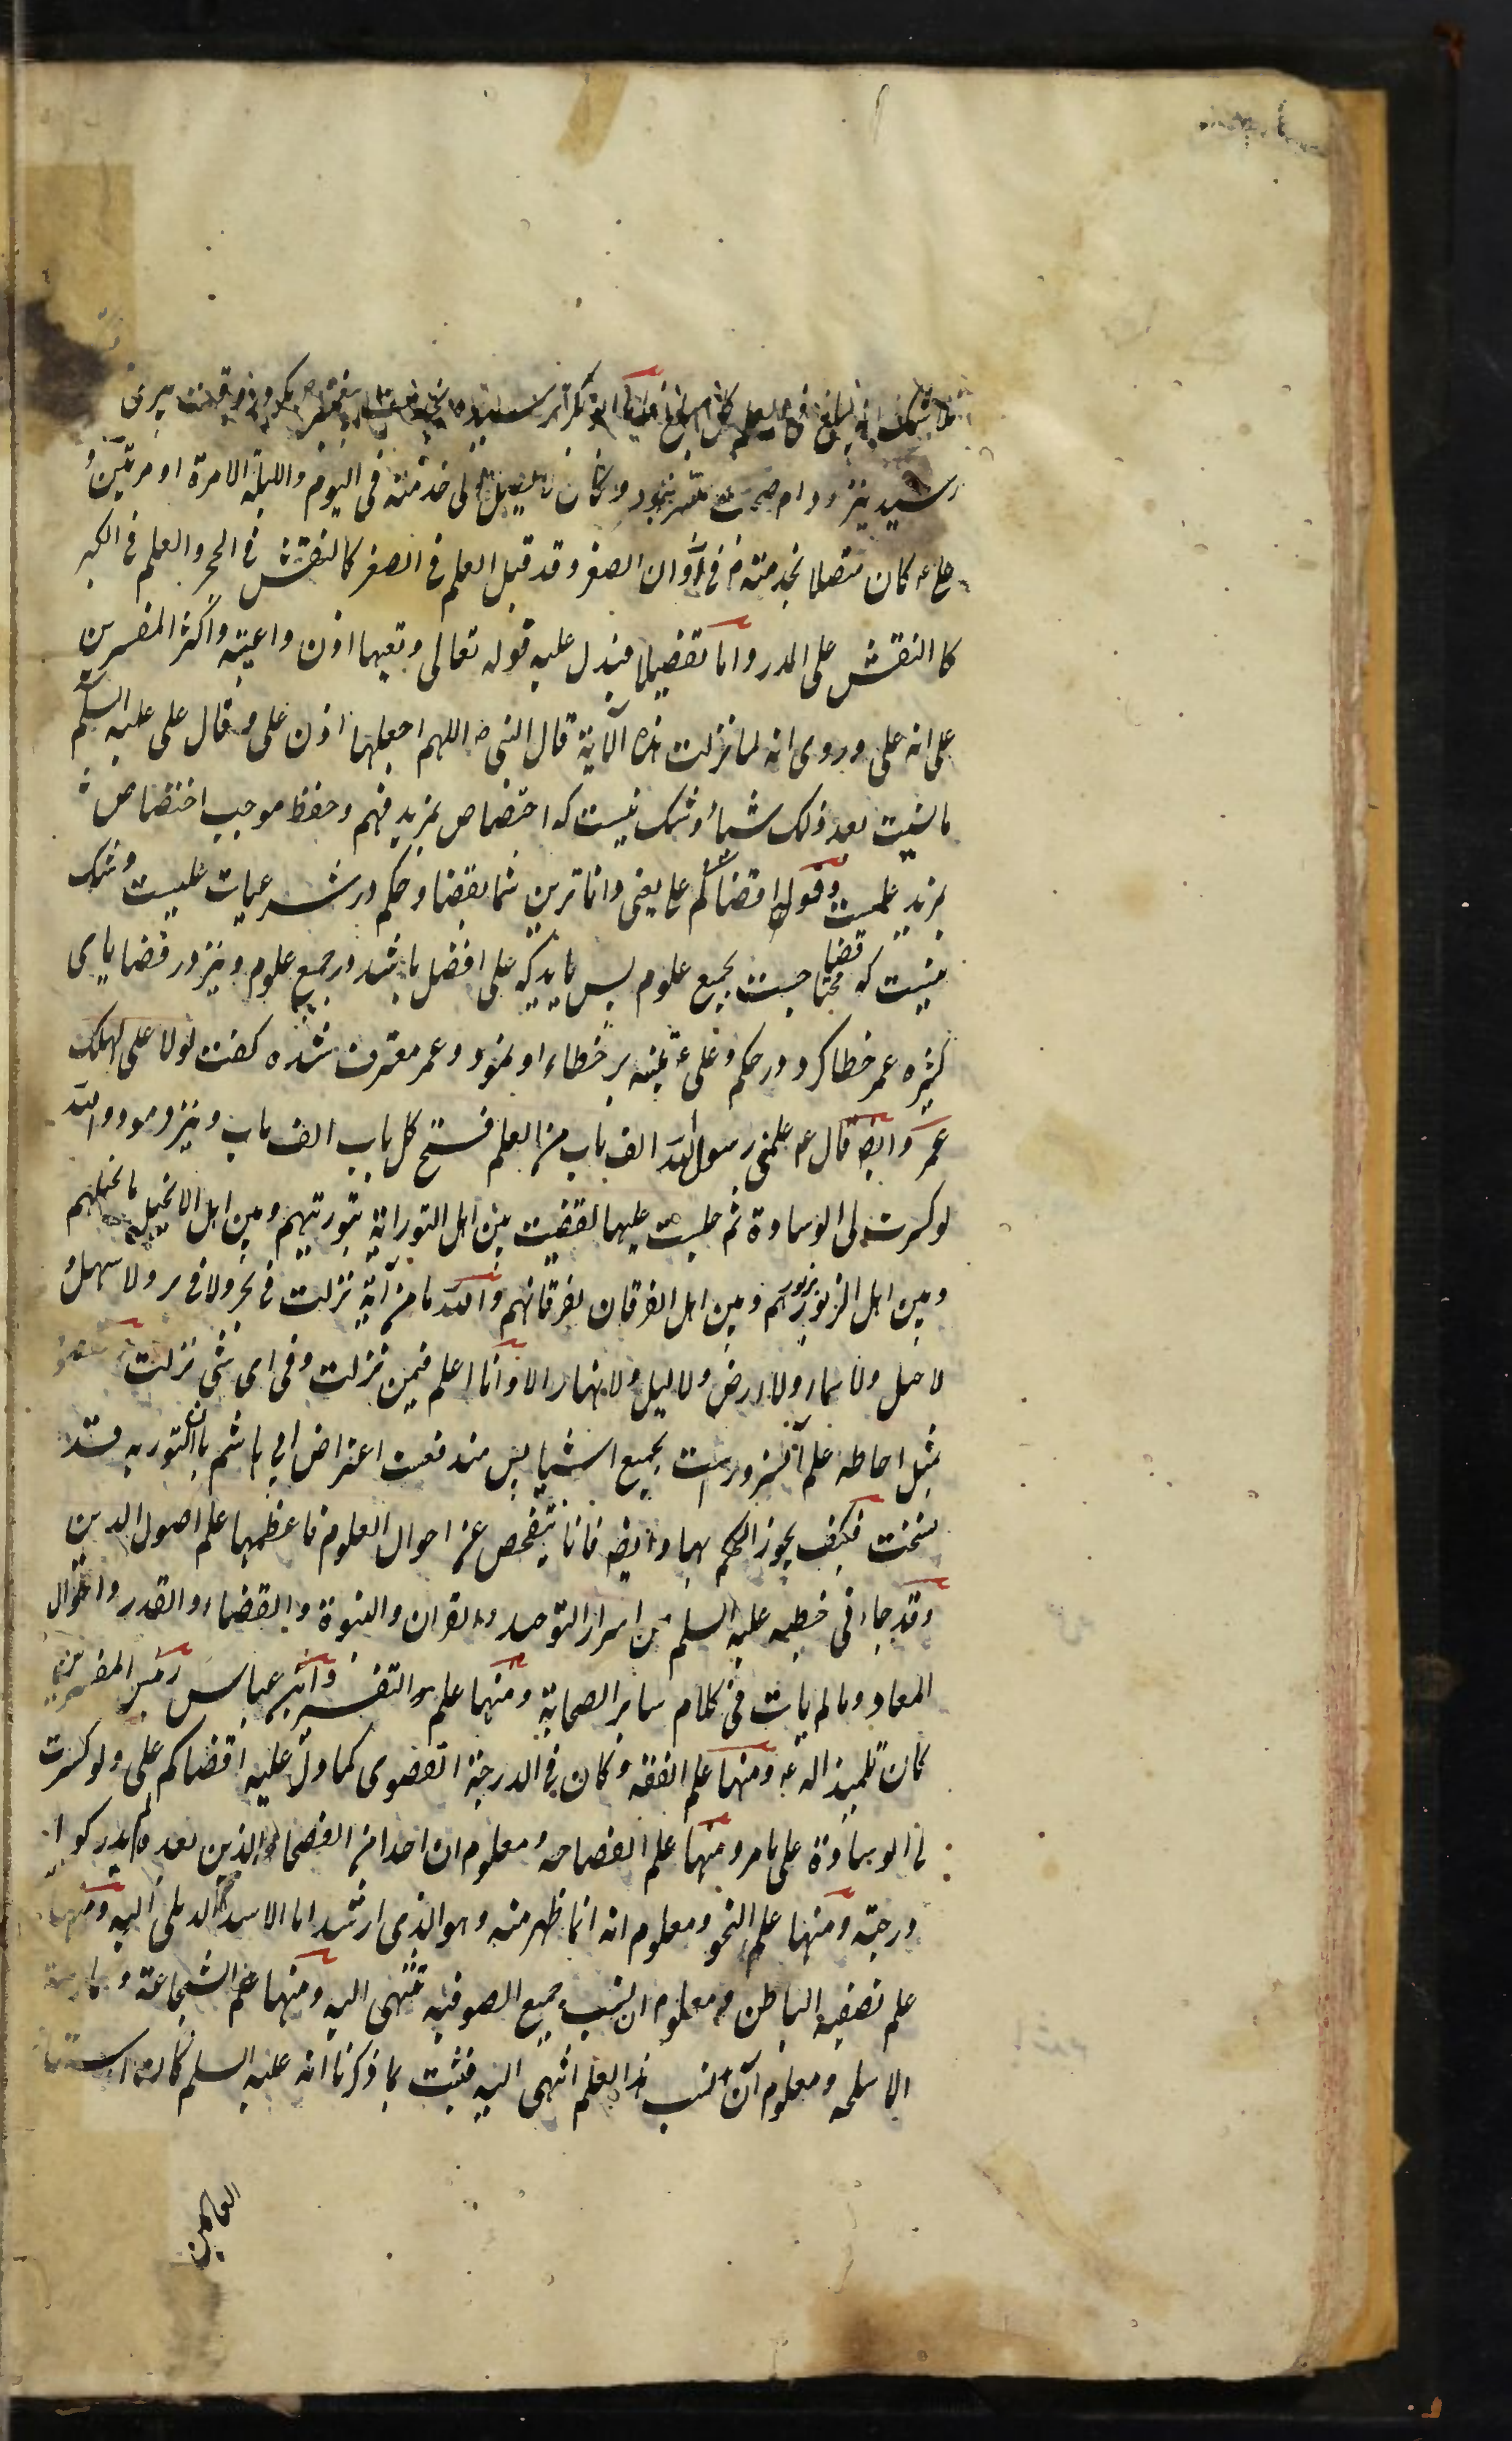 فلا شک انه یبلغ فی العلم کل مبلغ اما ابو بکر رسید در وقت پیری
رسید نیز دوام صحبت میسر نبود و کان یصل الی خدمته فی الیوم واللیلة الا مرة او مرتین و
علی ع کان متصلا بخدمته م فی اوان الصغر و قد قیل العلم فی الصغر کالنقش فی الحجر والعلم فی الکبر
کا النقش علی المدر واما تفصیلا فیدل علیه قوله تعالی وتعیها اذن واعیة واکثر المفسرین
علی انه علی وروی انه لما نزلت هذه الآیة قال النبی ص اللهم اجعلها اذن علی و قال علی علیه السلم
ما نسیت بعد ذلک شیئا و شک نیست که اختصاص بمزید فهم و حفظ موجب اختصاص
بمزید علمست وقوله اقضاکم علی یعنی داناترین شما بقضا و حکم در شرعیات علیست و شک
نیست که قضا محتاجست بجمیع علوم پس باید که علی افضل باشد در جمیع علوم و نیز در قضایای
کثیره عمر خطا کرد در حکم و علی ع تنبیه بر خطاء او نمود و عمر معترف شده کفت لولا علی لهلک
عمر وایضا قال ع علمنی رسول الله الف باب من العلم فتح کل باب الف باب و نیز فرمود والله
لو کسرت لی الوسادة ثم جلست علیها لقضیت بین اهل التوراية بتوریتهم وبین اهل الانجیل بانجیلهم
وبین اهل الزبور بزبورهم وبین اهل الفرقان بفرقانهم والله ما من آیة نزلت فی بحر ولا فی بر ولا سهل و
لا جبل ولا سماء ولا ارض ولا لیل ولا نهار الا وانا اعلم فیمن نزلت وفی ای شئ نزلت
مثل احاطه علم آنسرورست بجمیع اشیا پس مندفعست اعتراض ابی هاشم بان التوریه قد
نسخت فکیف یجوز الحکم بها وایضا فانا نتفحص عن احوال العلوم فاعظمها علم اصول الدین
وقد جاء فی خطبه علیه السلم من اسرار التوحید والقران والنبوة والقضاء والقدر واحوال
المعاد وما لم یات فی کلام سایر الصحابة ومنها علم التفسیر وابن عباس رئیس المفسرین
کان تلمیذا له ع ومنها علم الفقه وکان فی الدرجة القصوی کما دل علیه اقضاکم علی ولو کسرت
لی الوسادة علی ما مر ومنها علم الفصاحه ومعلوم ان احدا من الفصحاء الذین بعده لم یدرکوا
درجته ومنها علم النحو ومعلوم انه انما ظهر منه وهو الذی ارشد ابا الاسود الدیلی الیه ومنها
علم تصفیة الباطن ومعلوم ان نسب جمیع الصوفیه تنتهی الیه ومنها علم الشجاعة و
الاسلحه ومعلوم ان نسب هذا العلم انتهی الیه فثبت بما ذکرنا انه علیه السلم کان استاد
العالمین